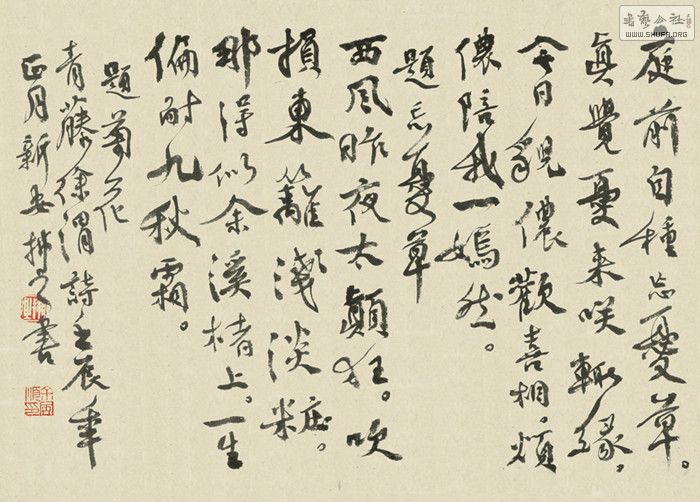 庭前自種忘憂草。
真覺憂來咲輒緣。
今日貌儂歡喜相。煩
儂陪我一嫣然。
題忘憂草
西風昨夜太顛狂。吹
損東籬淺淡粧。
那得似余溪楮上。一生
偏耐九秋霜。
題菊花
青藤徐渭詩壬辰年
正月新安書
書藝公社
WWW.SHUFA.ORG